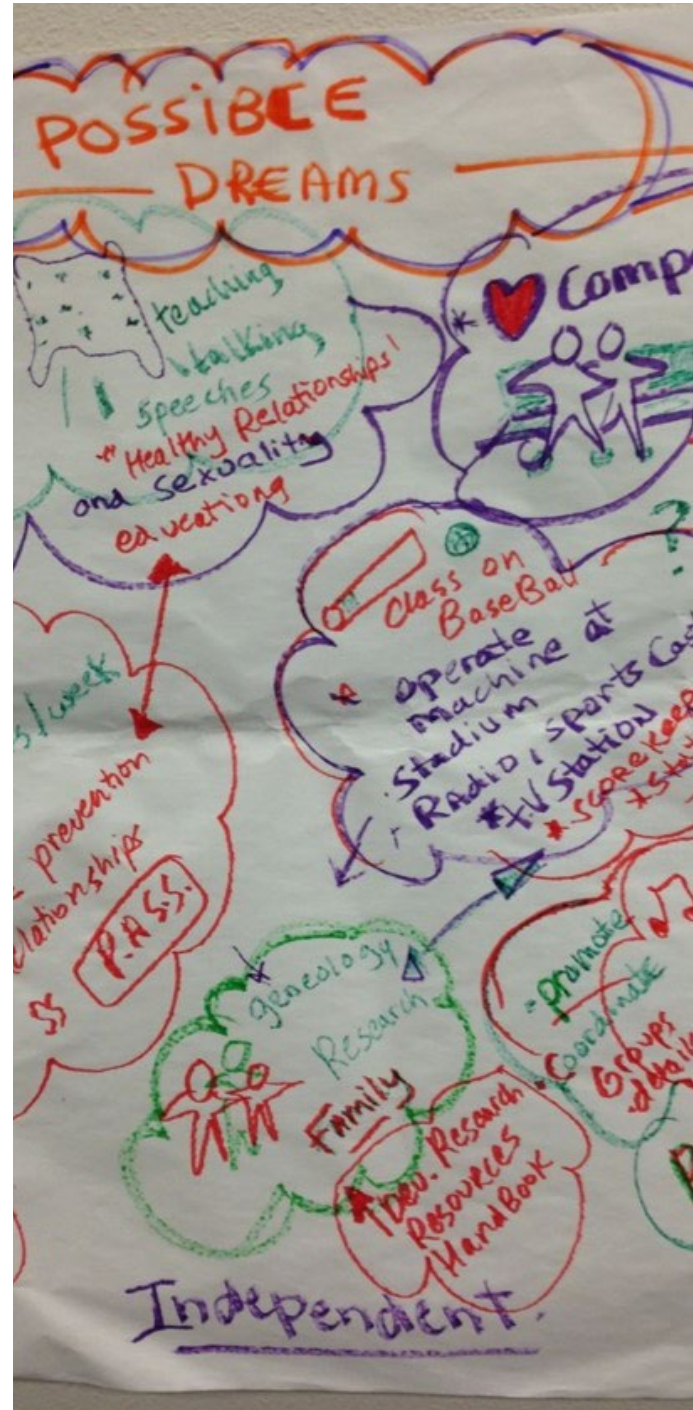 POSSIBLE
DREAMS
teaching
talking
speeches
"Healthy Relationships'
and sexuality
* ♥ Comp
class on
BaseBall
?
* operate
machine at
Stadium
Radio, sports Cas
*T.V Station
*scorekeep
*Sta
s/week
prevention
elationships
SS P.A.S.S.
geneology
Research
Family
1 Dev. Research
Resources
HandBook
-promote
-Coordinate
Groups
.details
Independent.